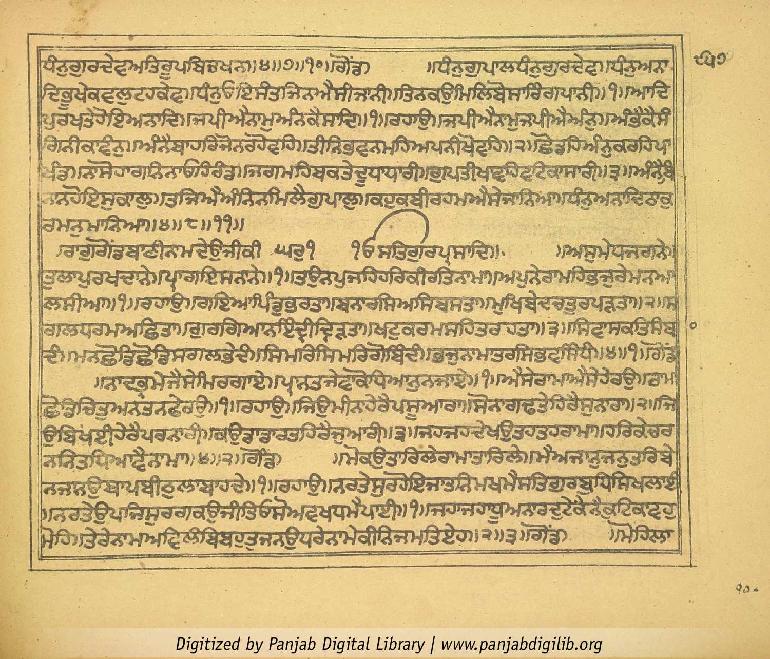 ਧੰਨੁਗੁਰਦੇਵਅਤਿਰੂਪਬਿਚਖਨ॥੪॥੭॥੧੦॥ਗੋਂਡ॥ ਧੰਨੁਗੁਪਾਲਧੰਨੁਗੁਰਦੇਵ॥ਧੰਨੁਅਨਾ
ਦਿਭੂਖੇਕਵਲੁਟਹਕੇਵ॥ਧੰਨੁਓਇਸੰਤਜਿਨਐਸੀਜਾਨੀ॥ਤਿਨਕਉਮਿਲਿਬੋਸਾਰਿੰਗਪਾਨੀ॥੧॥ਆਦਿ
ਪੁਰਖਤੇਹੋਇਅਨਾਦਿ॥ਜਪੀਐਨਾਮੁਅੰਨਕੈਸਾਦਿ॥੧॥ਰਹਾਉ॥ਜਪੀਐਨਾਮੁਜਪੀਐਅੰਨੁ॥ਅੰਭੈਕੈਸੰ
ਗਿਨੀਕਾਵੰਨੁ॥ਅੰਨੈਬਾਹਰਿਜੋਨਰਹੋਵਹਿ॥ਤੀਨਿਭਵਨਮਹਿਅਪਨੀਖੋਵਹਿ॥੨॥ਛੋਡਹਿਅੰਨੁਕਰਹਿਪਾ
ਖੰਡ॥ਨਾਸੋਹਾਗਨਿਨਾਓਹਿਰੰਡ॥ਜਗਮਹਿਬਕਤੇਦੂਧਾਧਾਰੀ॥ਗੁਪਤੀਖਾਵਹਿਵਟਿਕਾਸਾਰੀ॥੩॥ਅੰਨੈਬਿ
ਨਾਨਹੋਇਸੁਕਾਲੁ॥ਤਜਿਐਅੰਨਿਨਮਿਲੈਗੁਪਾਲੁ॥ਕਹੁਕਬੀਰਹਮਐਸੇਜਾਨਿਆ॥ਧੰਨੁਅਨਾਦਿਠਾਕੁ
ਰਮਨੁਮਾਨਿਆ॥੪॥੮॥੧੧॥
ਰਾਗੁਗੋਂਡਬਾਣੀਨਾਮਦੇਉਜੀਕੀ ਘਰੁ੧ ੴਸਤਿਗੁਰਪ੍ਰਸਾਦਿ॥ ਅਸੁਮੇਧਜਗਨੇ॥
ਤੁਲਾਪੁਰਖਦਾਨੇ॥ਪ੍ਰਾਗਇਸਨਾਨੇ॥੧॥ਤਉਨਪੁਜਹਿਹਰਿਕੀਰਤਿਨਾਮਾ॥ਅਪੁਨੇਰਾਮਹਿਭਜੁਰੇਮਨਆ
ਲਸੀਆ॥੧॥ਰਹਾਉ॥ਗਇਆਪਿੰਡੁਭਰਤਾ॥ਬਨਾਰਸਿਅਸਿਬਸਤਾ॥ਮੁਖਿਬੇਦਚਤੁਰਪੜਤਾ॥੨॥ਸ
ਗਲਧਰਮਅਛਿਤਾ॥ਗੁਰਗਿਆਨਇੰਦ੍ਰੀਦ੍ਰਿੜਤਾ॥ਖਟੁਕਰਮਸਹਿਤਰਹਤਾ॥੩॥ਸਿਵਾਸਕਤਿਸੰਬਾ
ਦੰ॥ਮਨਛੋਡਿਛੋਡਿਸਗਲਭੇਦੰ॥ਸਿਮਰਿਸਿਮਰਿਗੋਬਿੰਦੰ॥ਭਜੁਨਾਮਾਤਰਸਿਭਵਸਿੰਧੰ॥੪॥੧॥ਗੋਂਡ
॥ਨਾਦਭ੍ਰਮੇਜੈਸੇਮਿਰਗਾਏ॥ਪ੍ਰਾਨਤਜੇਵਾਕੋਧਿਆਨੁਨਜਾਏ॥੧॥ਐਸੇਰਾਮਾਐਸੇਹੇਰਉ॥ਰਾਮੁ
ਛੋਡਿਚਿਤੁਅਨਤਨਫੇਰਉ॥੧॥ਰਹਾਉ॥ਜਿਉਮੀਨਾਹੇਰੈਪਸੂਆਰਾ॥ਸੋਨਾਗਢਤੇਹਿਰੈਸੁਨਾਰਾ॥੨॥ਜਿ
ਉਬਿਖਈਹੇਰੈਪਰਨਾਰੀ॥ਕਉਡਾਡਾਰਤਹਿਰੈਜੁਆਰੀ॥੩॥ਜਹਜਹਦੇਖਉਤਹਤਹਰਾਮਾ॥ਹਰਿਕੇਚਰ
ਨਨਿਤਧਿਆਵੈਨਾਮਾ॥੪॥੨॥ਗੋਂਡ॥ ਮੋਕਉਤਾਰਿਲੇਰਾਮਾਤਾਰਿਲੇ॥ਮੈਅਜਾਨੁਜਨੁਤਰਿਬੇ
ਨਜਾਨਉਬਾਪਬੀਠੁਲਾਬਾਹਦੇ॥੧॥ਰਹਾਉ॥ਨਰਤੇਸੁਰਹੋਇਜਾਤਨਿਮਖਮੈਸਤਿਗੁਰਬੁਧਿਸਿਖਲਾਈ
॥ਨਰਤੇਉਪਜਿਸੁਰਗਕਉਜੀਤਿਓਸੋਅਵਖਧਮੈਪਾਈ॥੧॥ਜਹਾਜਹਾਧੂਅਨਾਰਦੁਟੇਕੇਨੈਕੁਟਿਕਾਵਹੁ
ਮੋਹਿ॥ਤੇਰੇਨਾਮਅਵਿਲੰਬਿਬਹੁਤੁਜਨਉਧਰੇਨਾਮੇਕੀਨਿਜਮਤਿਏਹ॥੨॥੩॥ਗੋਂਡ॥ ਮੋਹਿਲਾ
Digitized by Panjab Digital Library | www.panjabdigilib.org